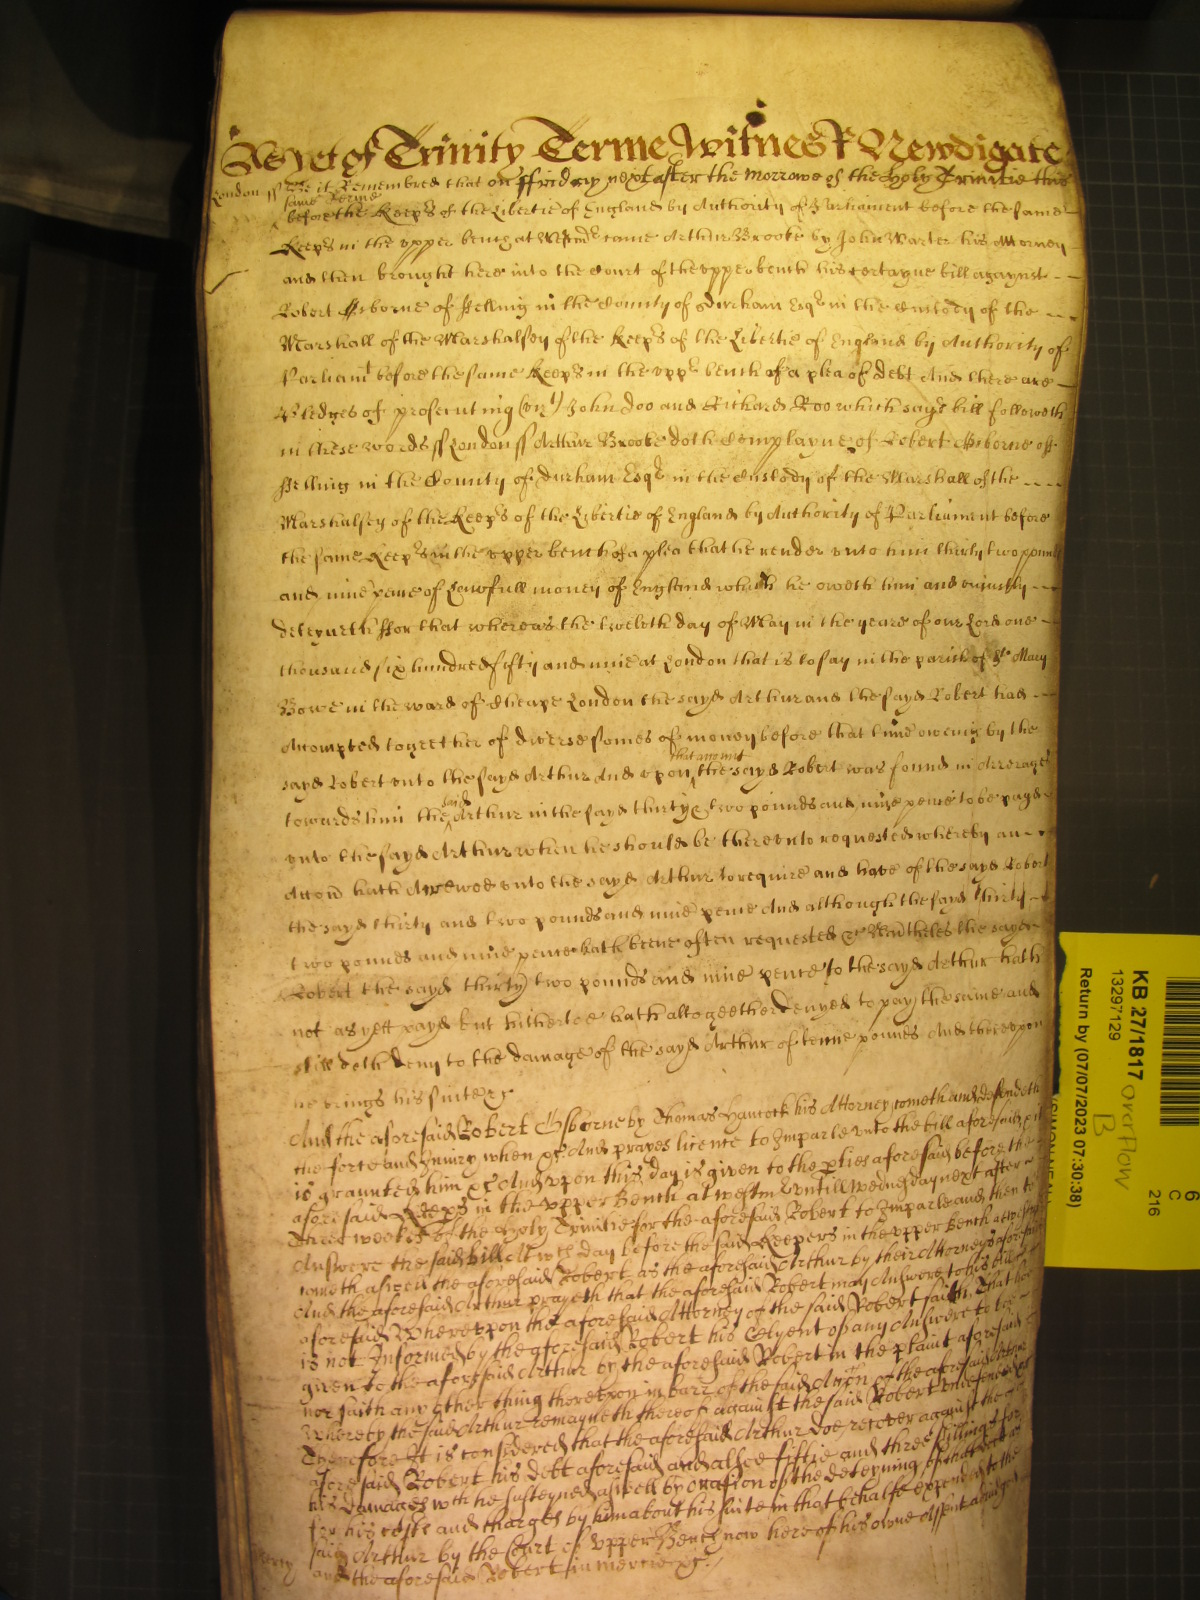 As yet of Trinity Terme Witnes R Newdigate
London ss Be it Remembred that on ffriday next after the morrowe of the holy Trinitie this
same Terme
before the Keeps of the Libertie of England by Authority of Parliament before the same
Keeps in the upper bench at Westmr came Arthur Brooke by John Warter his Attorney
and then brought here into the Court of the upper bench his certayne bill agaynst
Robert Osborne of ffelling in the County of Durham Esqr in the Custody of the
Marshall of the Marshalsey of the Keeps of the Libertie of England by Authority of
Parliamt before the same Keeps in the uppr bench of a plea of debt And there are
Pledges of prosecuting (vizt) John Doo and Richard Roo which sayd bill followeth
in these words ss London ss Arthur Brooke doth Complayne of Robert Osborne of
ffelling in the County of Durham Esqr in the Custody of the Marshall of the
Marshalsey of the Keeps of the Libertie of England by Authority of Parliament before
the same Keeps in the upper bench of a plea that he render unto him thirty two pounds
and nine pence of Lawfull money of England which he oweth him and uniustly
deteyneth ffor that whereas the twelvth day of May in the yeare of our Lord one
thousand six hundred fifty and nine at London that is to say in the parish of St Mary
Bowe in the ward of Cheape London the sayd Arthur and the sayd Robert had
Accompted togeether of diverse somes of money before that time oweing by the
sayd Robert unto the sayd Arthur And upon that accompt the sayd Robert was found in Arrerages
towards him the said Arthur in the sayd thirty & two pounds and nine pence to be payd
unto the sayd Arthur when he should be thereunto requested whereby an
Accon hath Accrewed unto the sayd Arthur to require and have of the sayd Robert
the sayd thirty and two pounds and nine pence And although the sayd thirty
two pounds and nine pence hath beene often requested &c Neutheles the sayd
Robert the sayd thirty two pounds and nine pence to the sayd Arthur hath
not as yett payd but hitherto hath altogeether denyed to pay the same and
still doth deny to the damage of the sayd Arthur of tenne pounds And thereupon
he brings his suite &c
And the aforesaid Robert Osborne by Thomas Hancock his Attorney cometh and defendeth
the force and Iniury when &c And prayes licence to Imparle unto the bill aforesaid, &
is graunted him &c And upon this day is given to the pties aforesaid before the
aforesaid Keeps in the upper Bench at westm Untill wednesday next after
three weekes of the Holy Trinitie for the aforesaid Robert to Imparle and then to
Answere the said bill At wch day before the said Keepers in the upper Bench at westm
cometh aswell the aforesaid Robert as the aforesaid Arthur by their Attorneys aforesaid
And the aforesaid Arthur prayeth that the aforesaid Robert may Answere to his bill
aforesaid Whereupon the aforesaid Attorney of the said Robert saith, That hee
is not Informed by the aforesaid Robert his Clyent of any Answere to be
given to the aforesaid Arthur by the aforesaid Robert in the plaint aforesaid
nor saith any other thing thereupon in barr of the said Accon of the aforesaid Arthur
Whereby the said Arthur remayneth thereof against the said Robert undefended
Therefore It is considered that the aforesaid Arthur doe recover against the
aforesaid Robert his debt aforesaid and alsoe fiftie and three shillings for
his Damages wch he susteyned aswell by occasion of the deteyning of that debt as
for his costs and charges by him about his suite in that behalfe expended to the
said Arthur by the Court of Upper Bench now here of his owne Assent adiudged
and the aforesaid Robert in mercie &c
Mercy
KB 27/1817 overflow
B
13297129
Return by (07/07/2023 07:30:38)
6
C
216